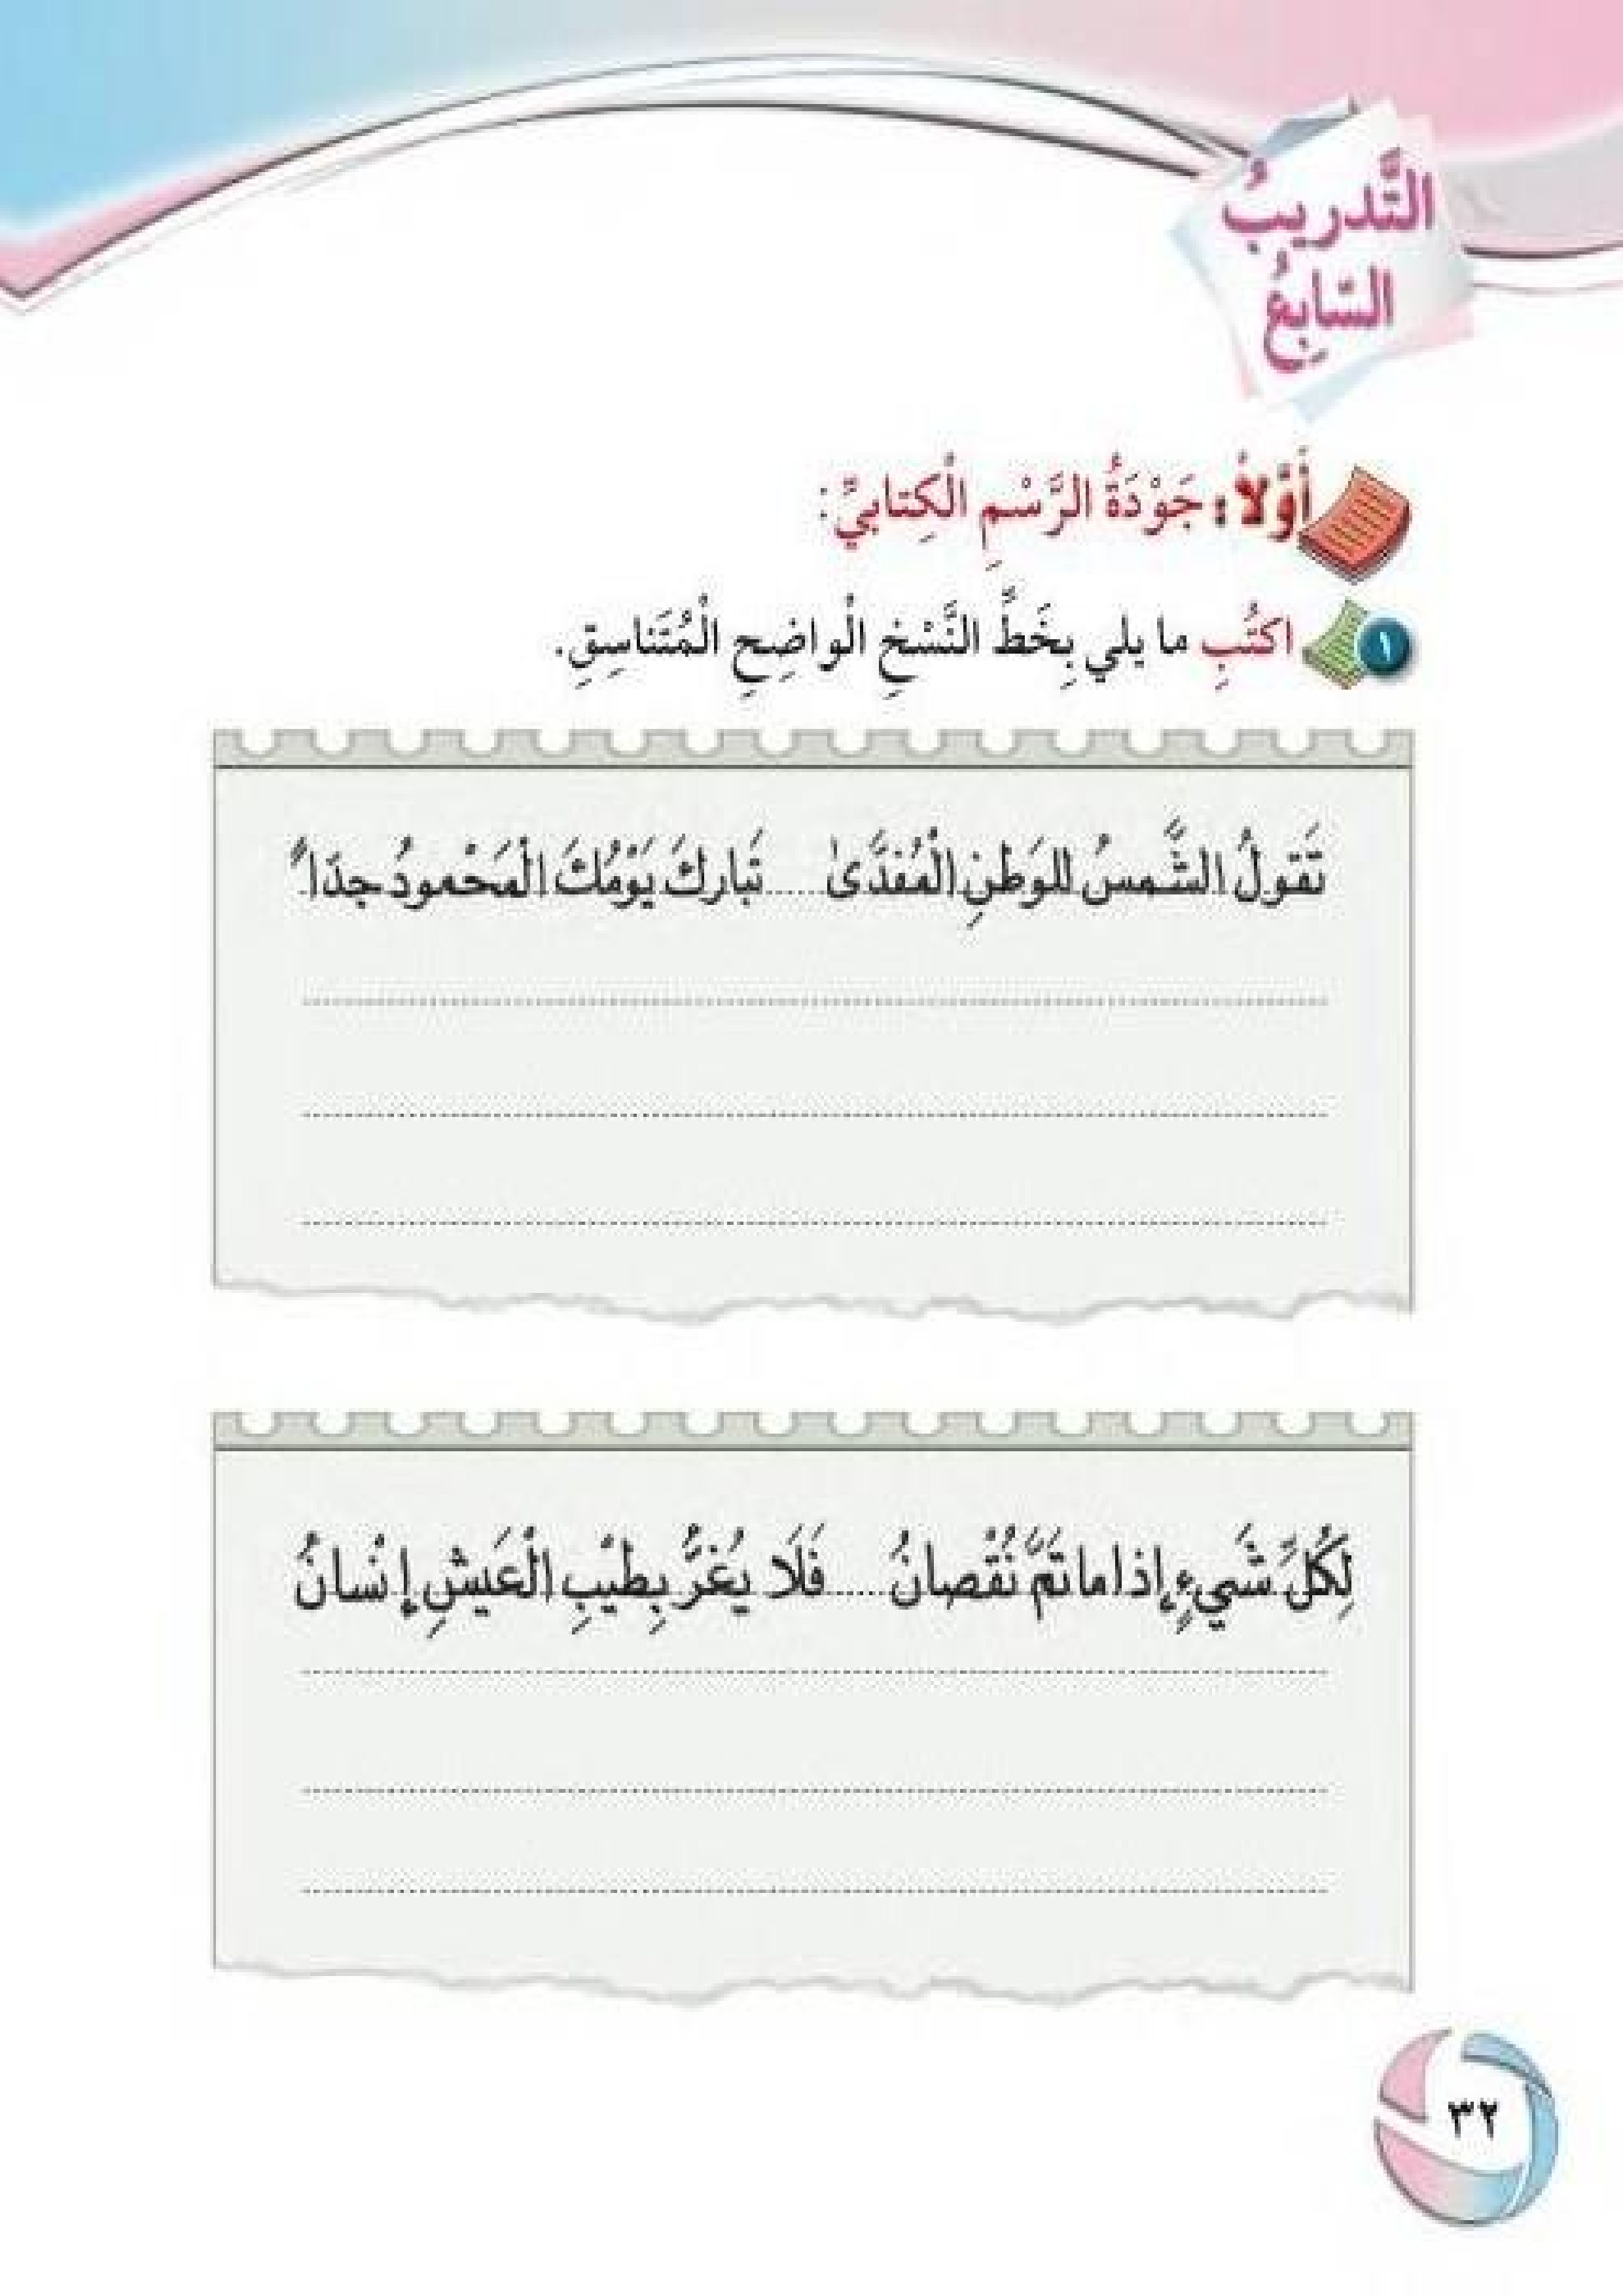 التَّدريبُ
السّابِعُ
أَوَّلاً: جَوْدَةُ الرَّسْمِ الْكِتابيِّ:
١ اكتُبِ ما يلي بِخَطِّ النَّسْخِ الْواضِحِ الْمُتَناسِقِ.
تَقولُ الشَّمسُ للوَطنِ الْمُفدَّىٰ ...... تَبارَكَ يَوْمُكَ الْمَحْمودُ جدَاً
لِكُلِّ شَيءٍ إذا ماتَمَّ نُقْصانُ ...... فَلَا يُغَرُّ بِطيْبِ الْعَيْشِ إنْسانُ
٣٢